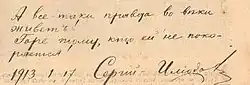 А все-таки правда во вѣки
живетъ!
Горе тому, кто ей не поко-
рится!
1913. 1. 17. Сергѣй